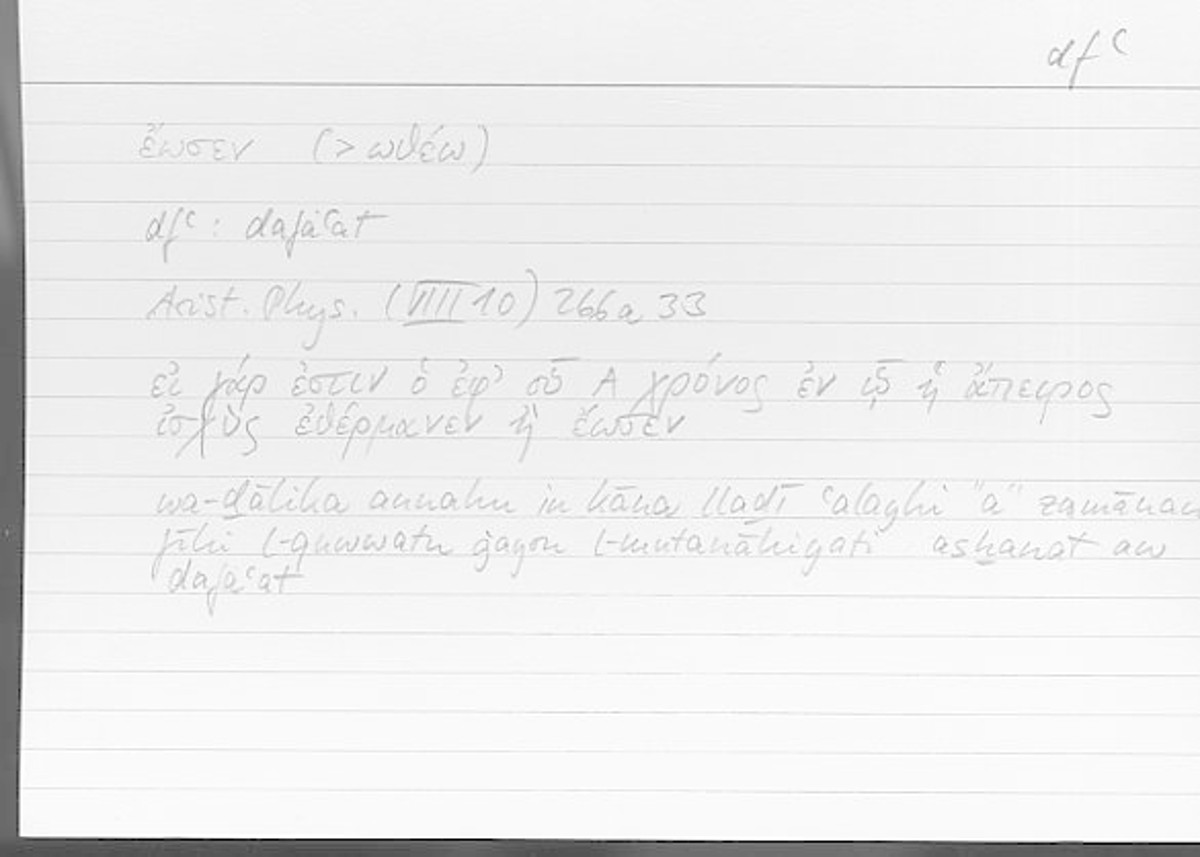 dfʿ
ἔωσεν (> ωθέω)
dfʿ : dafaʿat
Arist. Phys. (VIII 10) 266a 33
εἰ γάρ ἐστιν ὁ ἐφ' οὗ Α χρόνος ἐν ᾧ ἡ ἄπειρος
ἰσχὺς ἐθέρμανεν ἢ ἔωσεν
wa-ḏālika annahu in kāna llaḏī ʿalayhi "a" zamānan
fīhi l-quwwatu ġayru l-mutanāhiyati asḫanat aw
dafaʿat